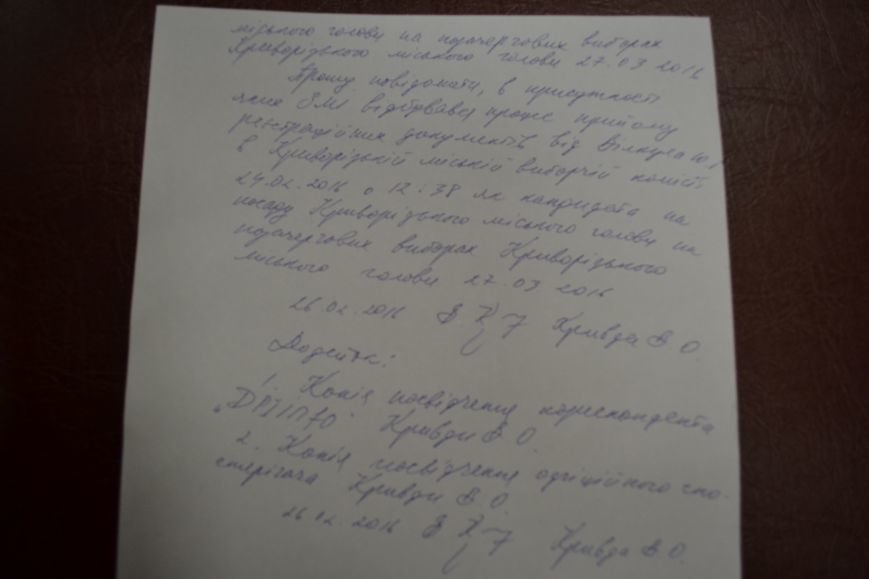 міського голови на позачергових виборах
Криворізького міського голови 27.03 2016
Прошу повідомити, в присутності
яких ЗМІ відбувався процес прийому
реєстраційних документів від Вілкула Ю.
в Криворізькій міській виборчій комісії
24.02.2016 о 12:38 як кандидата на
посаду Криворізького міського голови на
позачергових виборах Криворізького
міського голови 27.03 2016
26.02.2016 Кривда В О.
Додаток:
1. Копія посвідчення кореспондента
Кривди В О
2. Копія посвідчення офіційного спо-
стерігача Кривди В О.
26.02.2016 Кривда В О.